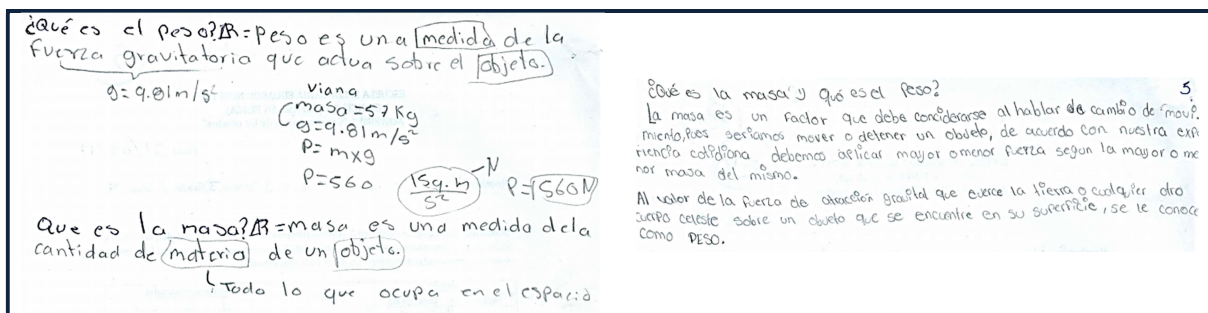 ¿Qué es el peso? R= Peso es una medida de la
fuerza gravitatoria que actua sobre el objeto.
g=9.81m/s²
Viana
masa=57Kg
g=9.81m/s²
P=mxg
P=560
1Sg.m/s² N P=560N
Que es la masa? R=masa es una medida dela
cantidad de materia de un objeto.
Todo lo que ocupa en el espacio
¿Qué es la masa y qué es el peso? 5
La masa es un factor que debe conciderarse al hablar de cambio de movi
miento, pues seriamos mover o detener un obueto, de acuerdo con nuestra expe
riencia cotidiana, debemos aplicar mayor o menor fuerza segun la mayor o me
nor masa del mismo.
Al valor de la fuerza de atracción gravital que euerce la tierra o cualquier otro
cuerpo celeste sobre un obueto que se encuentre en su superficie, se le conoce
como PESO.